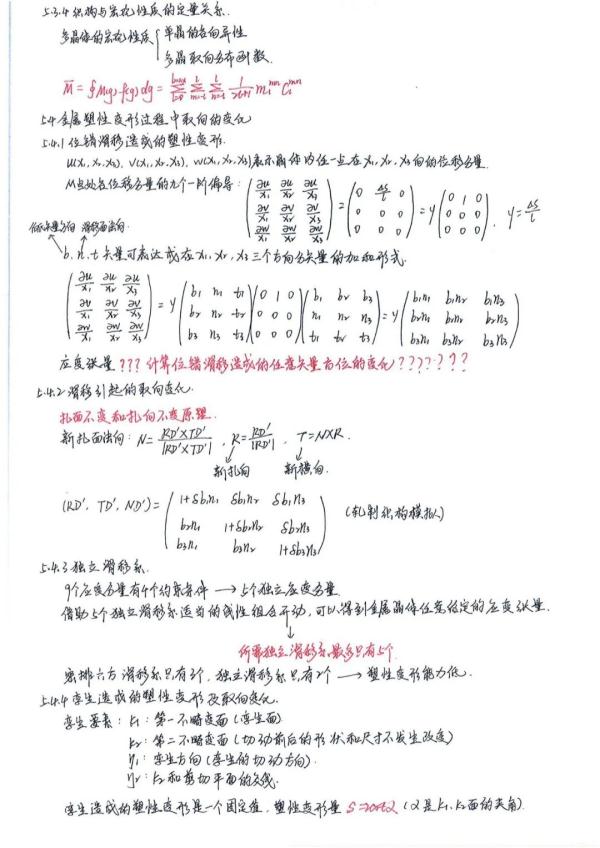 5.3.4 织构与宏观性质的定量关系.
多晶体的宏观性质 { 单晶的各向异性
多晶取向分布函数.
M̄ = ∮M(g)·f(g)dg = Σ(l=0→lmax) Σ(m=-l→l) Σ(n=-l→l) 1/(2l+1) m_l^mn C_l^mn
5.4 金属塑性变形过程中取向的变化
5.4.1 位错滑移造成的塑性变形.
u(x₁,x₂,x₃), v(x₁,x₂,x₃), w(x₁,x₂,x₃)表示晶体内任一点在x₁,x₂,x₃向的位移分量
M点处各位移分量的九个一阶偏导: (∂u/x₁ ∂u/x₂ ∂u/x₃; ∂v/x₁ ∂v/x₂ ∂v/x₃; ∂w/x₁ ∂w/x₂ ∂w/x₃) = (0 Δs/t 0; 0 0 0; 0 0 0) = γ(0 1 0; 0 0 0; 0 0 0), γ=Δs/t
滑移面法向.
b, n, t 矢量可表达成在x₁, x₂, x₃三个方向分矢量的加和形式.
(∂u/x₁ ∂u/x₂ ∂u/x₃; ∂v/x₁ ∂v/x₂ ∂v/x₃; ∂w/x₁ ∂w/x₂ ∂w/x₃) = γ(b₁ n₁ t₁; b₂ n₂ t₂; b₃ n₃ t₃)(0 1 0; 0 0 0; 0 0 0)(b₁ b₂ b₃; n₁ n₂ n₃; t₁ t₂ t₃) = γ(b₁n₁ b₁n₂ b₁n₃; b₂n₁ b₂n₂ b₂n₃; b₃n₁ b₃n₂ b₃n₃)
应变张量 ??? 计算位错滑移造成的任意矢量方位的变化??????
5.4.2 滑移引起的取向变化.
轧面不变和轧向不变原理.
新轧面法向: N = RD'×TD'/|RD'×TD'|, R = RD'/|RD'|, T=N×R.
新轧向 新横向.
(RD', TD', ND') = (1+δb₁n₁ δb₁n₂ δb₁n₃; b₂n₁ 1+δb₂n₂ δb₂n₃; b₃n₁ b₃n₂ 1+δb₃n₃) (轧制织构模拟)
5.4.3 独立滑移系.
9个应变分量有4个约束条件 → 5个独立应变分量
借助5个独立滑移系适当的线性组合开动, 可以得到金属晶体任意给定的应变张量.
↓
所需独立滑移系最多只有5个.
密排六方滑移系只有3个, 独立滑移系只有2个 → 塑性变形能力低.
5.4.4 孪生造成的塑性变形及取向变化.
孪生要素: K₁: 第一不畸变面(孪生面)
K₂: 第二不畸变面(切动前后的形状和尺寸不发生改变)
η₁: 孪生方向(孪生的切动方向).
η₂: K₂和剪切平面的交线.
孪生造成的塑性变形是一个固定值, 塑性变形量 S=2cot2 (2是K₁、K₂面的夹角).